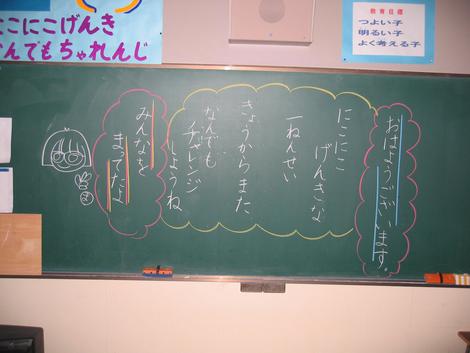 にこにこげんき
なんでもちゃれんじ
教育目標
つよい子
明るい子
よく考える子
おはようございます。
にこにこ
げんきな
一ねんせい
きょうからまた
なんでも
チャレンジ
しようね
みんなを
まってたよ